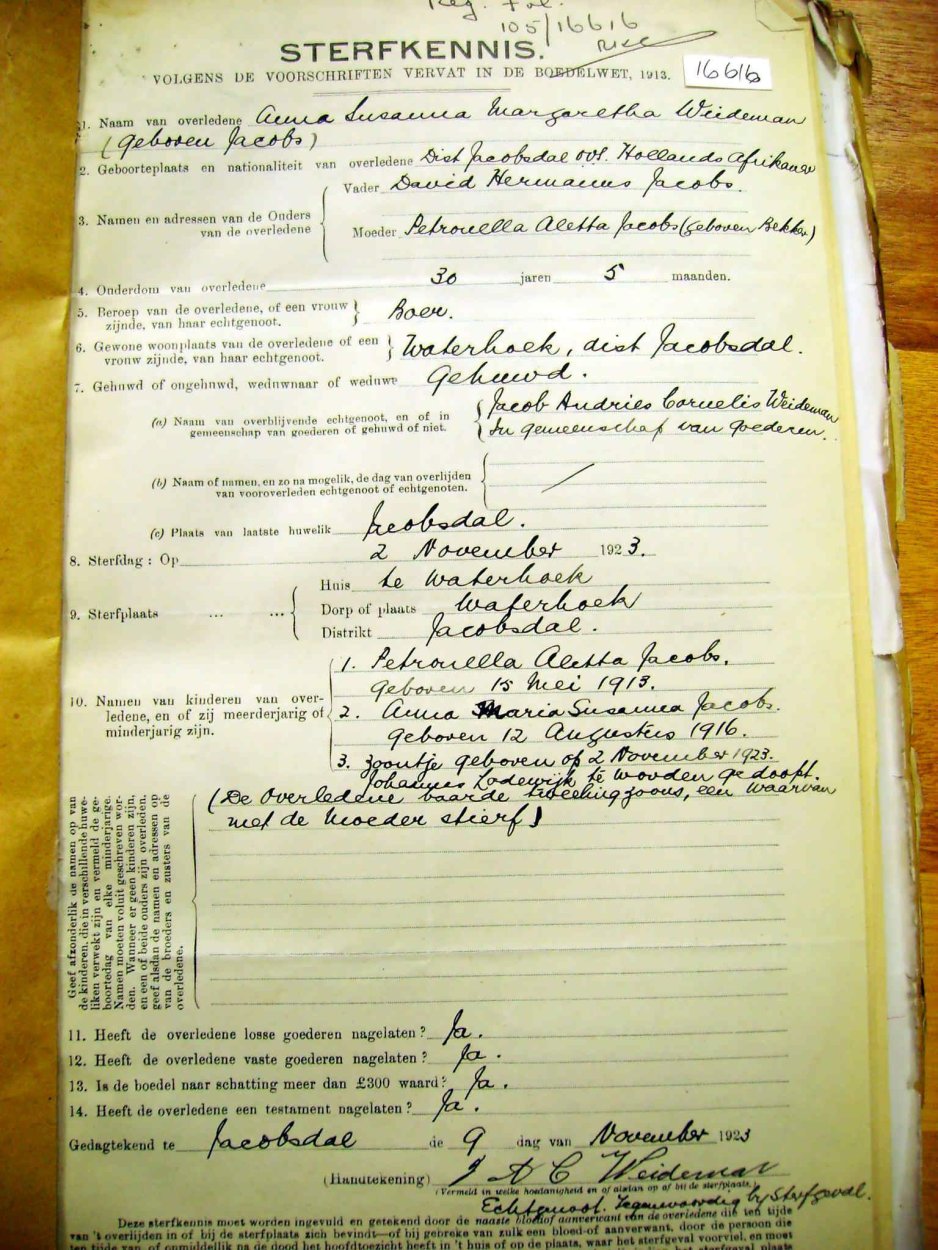 Reg. Fol.
105/16616
STERFKENNIS.
16616
VOLGENS DE VOORSCHRIFTEN VERVAT IN DE BOEDELWET, 1913.
1. Naam van overledene Anna Susanna Margaretha Weideman
(geboven Jacobs)
2. Geboorteplaats en nationaliteit van overledene Dist Jacobsdal OVS. Hollands Afrikaner
3. Namen en adressen van de Ouders van de overledene
Vader David Hermanus Jacobs.
Moeder Petronella Aletta Jacobs (geboven Bekker)
4. Onderdom van overledene 30 jaren 5 maanden.
5. Beroep van de overledene, of een vrouw
zijnde, van haar echtgenoot. Boer.
6. Gewone woonplaats van de overledene of een
vrouw zijnde, van haar echtgenoot. Waterhoek, dist Jacobsdal.
7. Gehuwd of ongehuwd, weduwnaar of weduwe Gehuwd.
(a) Naam van overblijvende echtgenoot, en of in
gemeenschap van goederen of gehuwd of niet.
Jacob Andries Cornelis Weideman
In gemeenschap van Goederen.
(b) Naam of namen, en zo na mogelik, de dag van overlijden
van vooroverleden echtgenoot of echtgenoten.
(c) Plaats van laatste huwelik Jacobsdal.
8. Sterfdag: Op 2 November 1923.
9. Sterfplaats ... ...
Huis te Waterhoek
Dorp of plaats Waterhoek
Distrikt Jacobsdal.
10. Namen van kinderen van over-
ledene, en of zij meerderjarig of
minderjarig zijn.
1. Petronella Aletta Jacobs.
Geboven 15 Mei 1913.
2. Anna Maria Susanna Jacobs.
Geboven 12 Augustus 1916.
3. Zoontje geboven op 2 November 1923.
Johannes Lodewijk te worden gedoopt.
(De Overledene baarde tweelingzoons, een waarvan
met de moeder stierf)
Geef afzonderlik de namen op van
de kinderen, die in verschillende huwe-
liken verwekt zijn en vermeld de ge-
boortedag van elke minderjarige.
Namen moeten voluit geschreven wor-
den. Wanneer er geen kinderen zijn,
en een of beide ouders zijn overleden,
geef alsdan de namen en adressen op
van de broeders en zusters van de
overledene.
11. Heeft de overledene losse goederen nagelaten? Ja.
12. Heeft de overledene vaste goederen nagelaten? Ja.
13. Is de boedel naar schatting meer dan £300 waard? Ja.
14. Heeft de overledene een testament nagelaten? Ja.
Gedagtekend te Jacobsdal de 9 dag van November 1923
(Handtekening) J A C Weideman
(Vermeld in welke hoedanigheid en of alsdan op of bij de sterfplaats.
Echtgenoot. Tegenwoordig bij Sterfgeval.
Deze sterfkennis moet worden ingevuld en getekend door de naaste bloed of aanverwant van de overledene die ten tijde
van 't overlijden in of bij de sterfplaats zich bevindt—of bij gebreke van zulk een bloed-of aanverwant, door de persoon die
ten tijde van of onmiddellik na de dood het hoofdtoezicht heeft in 't huis of op de plaats, waar het sterfgeval voorviel, en moet